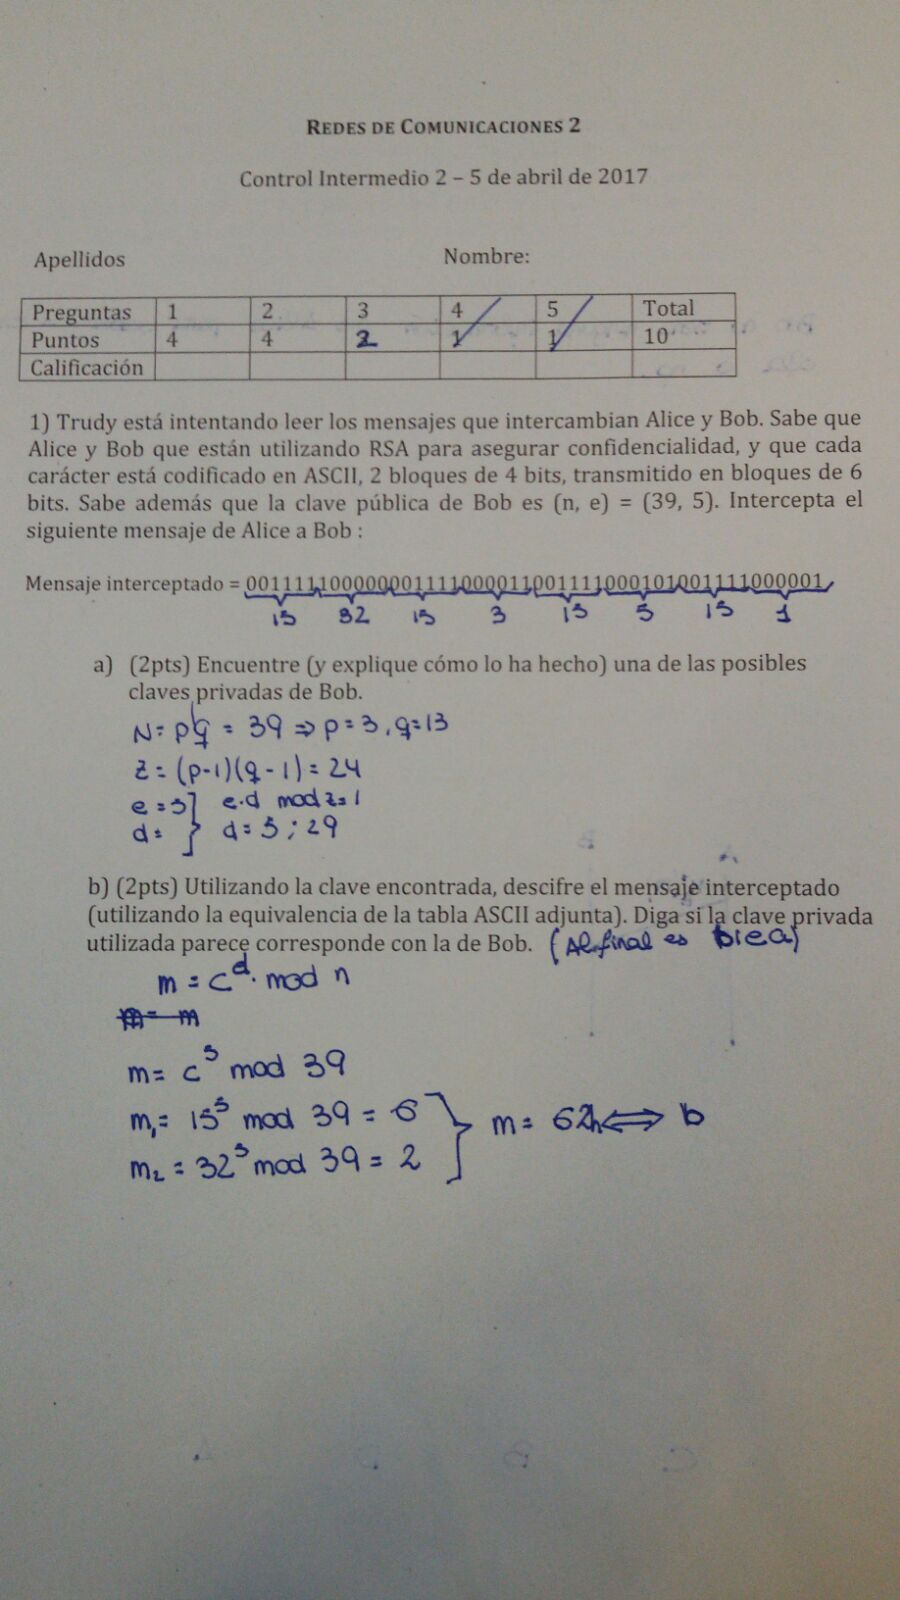 REDES DE COMUNICACIONES 2
Control Intermedio 2 – 5 de abril de 2017
Apellidos Nombre:
Preguntas 1 2 3 4 5 Total
Puntos 4 4 2 1 1 10
Calificación
1) Trudy está intentando leer los mensajes que intercambian Alice y Bob. Sabe que
Alice y Bob que están utilizando RSA para asegurar confidencialidad, y que cada
carácter está codificado en ASCII, 2 bloques de 4 bits, transmitido en bloques de 6
bits. Sabe además que la clave pública de Bob es (n, e) = (39, 5). Intercepta el
siguiente mensaje de Alice a Bob :
Mensaje interceptado = 001111100000001111000011001111000101001111000001
15 32 15 3 15 5 15 1
a) (2pts) Encuentre (y explique cómo lo ha hecho) una de las posibles
claves privadas de Bob.
N = pq = 39 ⇒ p = 3, q = 13
z = (p-1)(q-1) = 24
e = 5 } e·d mod z = 1
d = } d = 5 ; 29
b) (2pts) Utilizando la clave encontrada, descifre el mensaje interceptado
(utilizando la equivalencia de la tabla ASCII adjunta). Diga si la clave privada
utilizada parece corresponde con la de Bob. (Al final es biea)
m = c^d. mod n
m = m
m = c^5 mod 39
m₁ = 15^5 mod 39 = 6 } m = 62h ⇔ b
m₂ = 32^5 mod 39 = 2